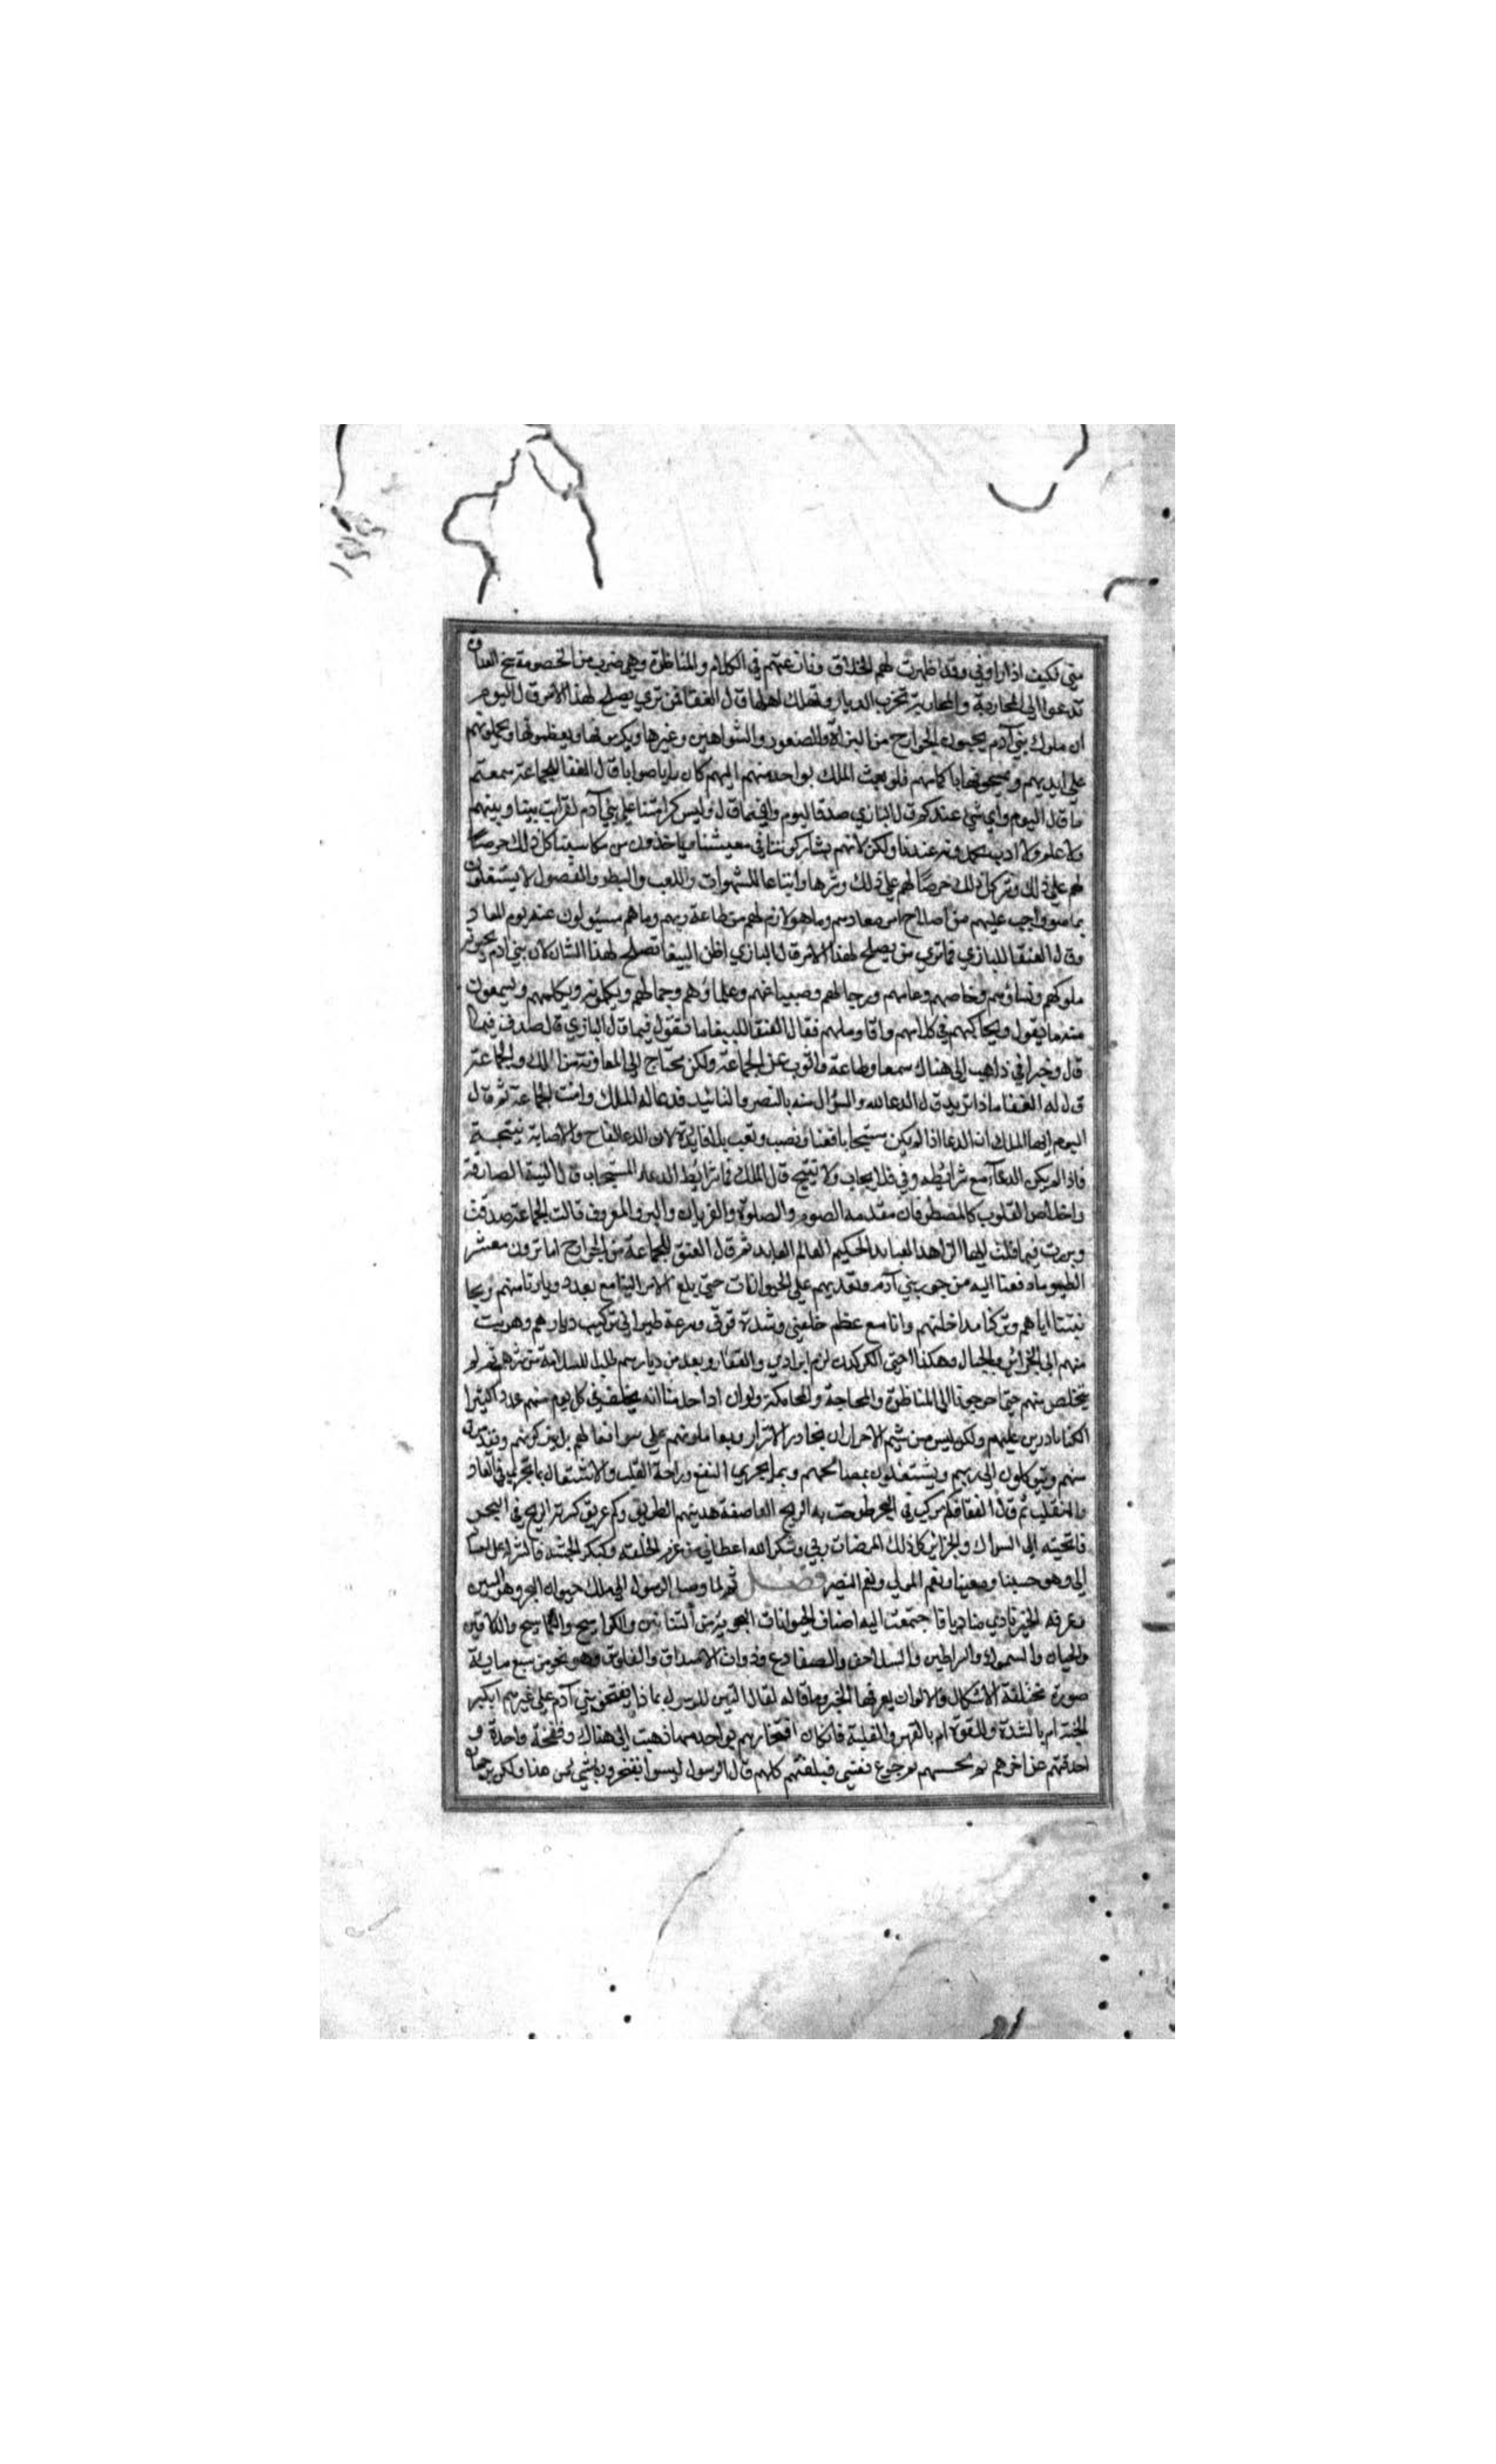 مني فكيف اذا راوني وقد اظهرت لهم الخلاف ونازعتهم في الكلام والمناظرة وهي ضرب من الخصومة
تدعوا الى المحاربة والمحاربة تخرب الديار وتهلك اهلها قال العنقا فمن تري يصلح لهذا الامر قال البوم
ان ملوك بني آدم يحبون الجوارح من البزاة والصقور والشواهين وغيرها ويكرمونها ويعظمونها ويحملونهم
علي ايديهم ويمسحونها باكمامهم فلو بعث الملك بواحد منهم اليهم كان رايا صوابا قال العنقا للجماعة سمعتم
ما قال البوم واي شي عندكم قال البازي صدق البوم وافي ما قال وليس كرامتنا علي بني آدم لقرابت بيننا وبينهم
ولا علم ولا ادب عندنا ولكن لانهم يشاركوننا في معيشتنا وياخذون من مكاسبنا كل ذلك حرصا
لهم علي ذلك وشرها واتباعا للشهوات واللعب والبطر والفضول لا يشتغلون
بما هو واجب عليهم من اصلاح امر معادهم وما هو لازم لهم من طاعة ربهم وما هم مسئولون عنه يوم المعاد
وقال العنقا للبازي فما تري من يصلح لهذا الامر قال البازي اظن الببغا تصلح لهذا الشان لان بني آدم يحبونه
ملوكهم ونساؤهم وخاصهم وعامهم ورجالهم وصبيانهم وعلماؤهم وجهالهم ويكلمونه ويكلمهم ويسمعون
منه ما يقول ويحاكيهم في كلامهم واقاويلهم فقال العنقا للببغا ما تقول فيما قال البازي قال صدق فيما
قال وخبر اني ذاهب الى هناك سمعا وطاعة وانوب عن الجماعة ولكن محتاج الى المعاونة من الملك والجماعة
قال له العنقا ماذا تريد قال الدعا لله والسؤال منه بالنصر والتائيد فدعا له الملك وامنت الجماعة ثم قال
البوم ايها الملك ان الدعا اذا لم يكن مستجابا فعنا ونصب وتعب بلا فايدة لان الدعا لقاح والاصابة نتيجة
فاذا لم يكن الدعا مع شرائطه وفي فلا يجاب ولا ينتج قال الملك فما شرايط الدعا المستجاب قال النية الصادقة
واخلاص القلوب كالمضطر فان مقدمه الصوم والصلوة والقربان والبر والمعروف قالت الجماعة صدقت
وبررت فيما قلت ايها الزاهد العابد الحكيم العالم العابد ثم قال العنقا للجماعة من الجوارح اما ترون معشر
الطيور ما دفعنا اليه من جور بني آدم وتعديهم علي الحيوانات حتي بلغ الامر الينا مع بعد ديارنا منهم ومجا
نبتنا اياهم وتركنا مداخلتهم وانا مع عظم خلقتي وشدة قوتي وسرعة طيراني تركت ديارهم وهربت
منهم الى الجزائر والجبال وهكذا اخي الكركدن لزم البراري والقفار وبعد من ديارهم طلبا للسلامة من شرهم ثم لم
يتخلص منهم حتي احوجونا الى المناظرة والمحاجة والمحاكمة ولو اراد احد منا انه يختطف في كل يوم منهم عددا كثيرا
لكنا قادرين عليهم ولكن ليس من شيم الاحرار ان يجاوز الاشرار ويعاملونهم علي سوء افعالهم بل يتركونهم
منهم ويتوكلون الى ربهم ويشتغلون بمصالحهم وبما يجري النفع وراحة القلب والاشتغال بما يجري في المعاد
والمنقلب ثم قال العنقا فكم مركب في البحر طرحت به الريح العاصفة هديتهم الطريق وكم غريق كسرته الريح في البحر
فانجيته الى السواحل والجزائر كل ذلك لمرضات ربي وشكر الله اعطاني من عزم الخلقة وكبر الجثة
وهو حسبنا ومعيننا ونعم المولي ونعم النصير فصل ثم لما وصل الرسول الى ملك حيوان البحر وهو التنين
وعرفه الخبر نادي مناديا فاجتمعت اليه اصناف الحيوانات البحرية من التنانين والكواسج والتماسيح والدلافين
والحيتان والسموك والسراطين والسلاحف والضفادع وذوات الاصداف والفلوس وهو نحو من سبع ماية
صورة مختلفة الاشكال والالوان يعرفها الخبر وما قاله فقال التنين للرسول بماذا يفتخر بني آدم علي غيرهم ابكبر
الجثة ام بالشدة والقوة ام بالقهر والغلبة فان كان افتخارهم بواحد منها ذهبت الى هناك ونفخت نفخة واحدة و
احرقتهم عن اخرهم ثم جذبتهم برجوع نفسي فبلعتهم كلهم قال الرسول ليسوا يفتخرون بشي من هذا ولكن